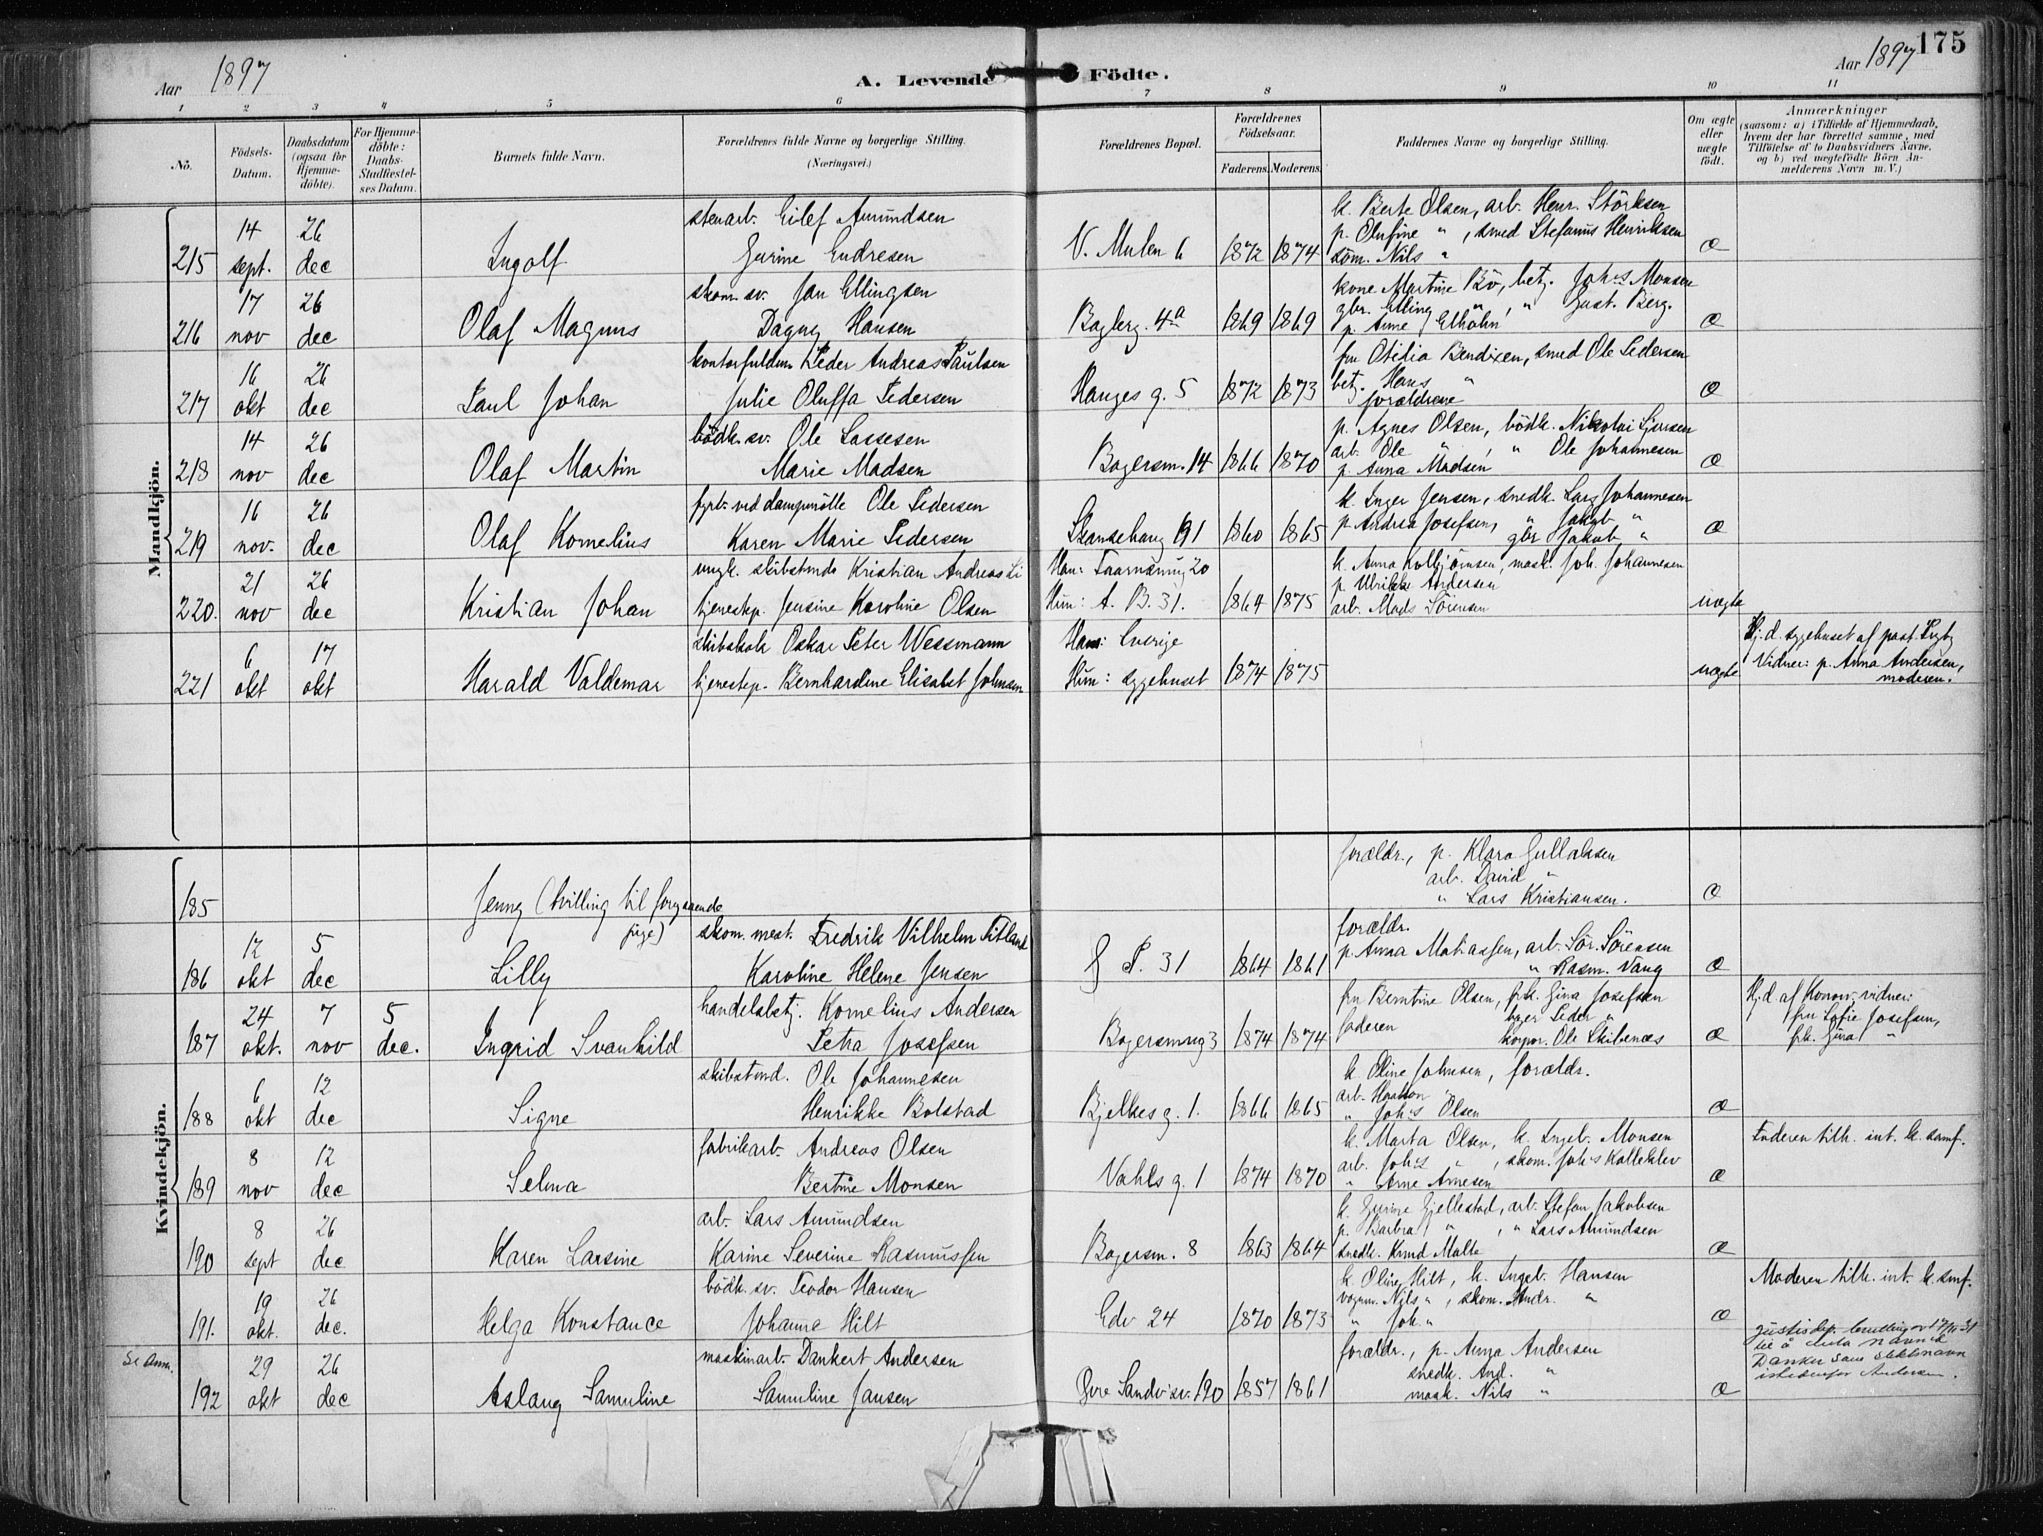 Aar 1897
A. Levende Födte.
Aar 1897
175
1 2 3 4 5 6 7 8 9 10 11
Nö.
Födsels-Datum.
Daabsdatum (ogsaa for Hjemmedöbte).
For Hjemmedöbte: Daabs-Stadfæstelses Datum.
Barnets fulde Navn.
Forældrenes fulde Navne og borgerlige Stilling. (Næringsvei.)
Forældrenes Bopæl.
Forældrenes Födselsaar.
Faderens. Moderens.
Faddernes Navne og borgerlige Stilling.
Om ægte eller uægte födt.
Anmærkninger
(saasom: a) i Tilfælde af Hjemmedaab, hvem der har forrettet samme, med Tilföielse af to Daabsvidners Navne, og b) ved uægtefödte Börn Anmelderens Navn m. V.)
Mandkjön.
215 14 sept. 26 dec Ingolf
stenarb. Eilef Amundsen
Gurine Endresen
V. Mulen 6 1872 1874
k. Berte Olsen, arb. Henr. Störksen
p. Olufine " , smed Stefanus Henriksen
söm. Nils "
æ
216 17 nov 26 dec Olaf Magnus
skom. sv. Jan Ellingsen
Dagny Hansen
Bagerg. 4a 1869 1869
kone Martine Bö, betj. Joh's Monsen
gbr. Elling " , " Gust. Berg.
p. Anne Elholm
æ
217 16 okt 26 dec Paul Johan
kontorfuldm. Peder Andreas Paulsen
Julie Oluffa Pedersen
Hauges g. 5 1872 1873
fru Otilia Bendixen, smed Ole Pedersen
betj. Hans "
forældrene
æ
218 14 nov 26 dec Olaf Martin
bödk. sv. Ole Lassesen
Marie Madsen
Bagersm. 14 1866 1870
p. Agnes Olsen, bödk. Nikolai Iversen
arb. Ole " , " Ole Johannesen
p. Anna Madsen
æ
219 16 nov. 26 dec Olaf Kornelius
fyrb. ved dampmölle Ole Pedersen
Karen Marie Pedersen
Skansehaug 91 1860 1865
k. Inger Jensen, snedk. Lars Johannesen
p. Andrea Josefsen, " Jakob "
gbr Jakob "
æ
220. 21 nov 26 dec Kristian Johan
ungk. skibstmd. Kristian Andreas Li
tjenestep. Jensine Karoline Olsen
Han: Taarnsmug 20
Hun: A. B. 31. 1864 1875
k. Anna Kolbjörnsen, mask. Joh. Johannesen
p. Ulrikke Andersen
arb. Mads Sörensen
uægte
221 6 okt 17 okt Harald Valdemar
skibskok Oskar Peter Wessmann
tjenestep. Bernhardine Elisabet Johnsen
Han: Sverige
Hun: sygehuset 1874 1875
uægte
Hj. d. sygehuset af past. Lyby
Vidner: p. Anna Andersen,
moderen.
Kvindekjön.
185 Jenny (tvilling til foregaaende
pige)
forældr., p. Klara Gullaksen
arb. David "
" Lars Kristiansen.
æ
186 12 okt 5 dec Lilly
skom. mest. Fredrik Vilhelm Titland
Karoline Helene Jensen
S. 31 1864 1861
forældr.
p. Anna Matiassen, arb. Sör. Sörensen
" Rasm. Vang
æ
187 24 okt. 7 nov 5 dec. Ingrid Svanhild
handelsbetj. Kornelius Andersen
Petra Josefsen
Bagersmug 3 1874 1874
fru Berntine Olsen, frk. Gina Josefsen
faderen bager Peder "
korpor. Ole Skibenæs
æ
Hj. d. af Konow, vidner:
fru Sofie Josefsen,
frk. Gina "
188 6 okt 12 dec Signe
skibstmd. Ole Johannesen
Henrikke Bolstad
Bjelkes g. 1. 1866 1865
k. Oline Johnsen, forældr.
arb. Haakon "
" Joh's Olsen
æ
189 8 nov 12 dec Selma
fabrikarb. Andreas Olsen
Bertine Monsen
Vahls g. 1 1874 1870
k. Marta Olsen, k. Ingeb. Monsen
arb. Joh's " , skom. Joh's Kalleklev
" Arne Arnesen
æ
Faderen tilh. int. k. samf.
190 8 sept 26 dec Karen Larsine
arb. Lars Amundsen
Karine Severine Rasmussen
Bagersm. 8 1863 1864
k. Gurine Gjellestad, arb. Stefan Jakobsen
p. Barbra " , " Lars Amundsen
snedk. Knud Malte
æ
191. 19 okt. 26 dec. Helga Konstance
bödk. sv. Teodor Hansen
Johanna Hilt
Edv 24 1870 1873
k. Oline Hilt, k. Ingeb. Hansen
vognm. Nils " , skom. Andr. "
" Joh. "
æ
Moderen tilh. int. k. smf.
Se Anm.
192 29 okt 26 dec Aslaug Samuline
maskinarb. Dankert Andersen
Samuline Jansen
Øvre Sandv. sv. 190 1857 1861
forældr., p. Anna Andersen
snedk. And. "
mask. Nils "
æ
Justisdep. bevilling av 17/11 31
til å ta navnet
Danker som slektsnavn
istedenfor Andersen.